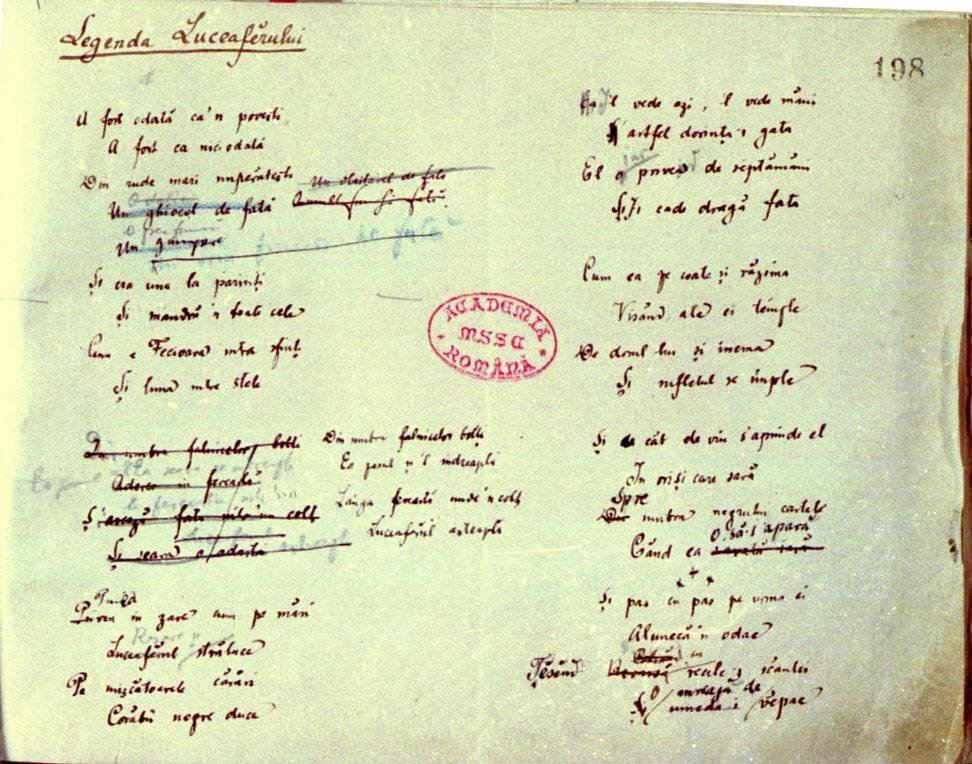 Legenda Luceafĕrului
198
A fost odată ca'n povești
A fost ca niciodată
Din rude mari împărătești
Un vlăstărel de fată
Un ghiocel de fată
Un
Și era una la părinți
Și mândră 'n toate cele
Cum e Fecioara între sfinți
Și luna între stele
Din umbra falnicelor bolți
Și seara
Din umbra falnicelor bolți
Ea pasul și 'l îndreaptă
Lânga fereastă unde 'n colț
Luceafĕrul așteaptă
Privea în zare cum pe mări
Luceafĕrul străluce
Pe mișcătoarele cărări
Corăbii negre duce
ACADEMIA
MSSE
ROMÂNĂ
Îl vede azi, îl vede mâni
Ș'astfel dorința-i gata
El privind de septămâni
Îi cade dragă fata
Cum ea pe coate-și răzima
Visând ale ei tâmple
De dorul lui și inema
Și sufletul se împle
Și cât de viu s'aprinde el
În oriși care sară
Spre
Din umbra negrului castel
O să-i apară
Când ea
Și pas cu pas pe urma ei
Alunecă 'n odae
Țesând recile-i scântei
O mreajă de
văpae